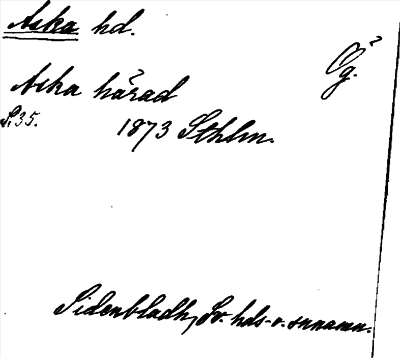 Aska hd.
Ög.
Aska härad
S. 35. 1873 Sthlm.
Sidenbladh, Sv. hds- o. snnamn.